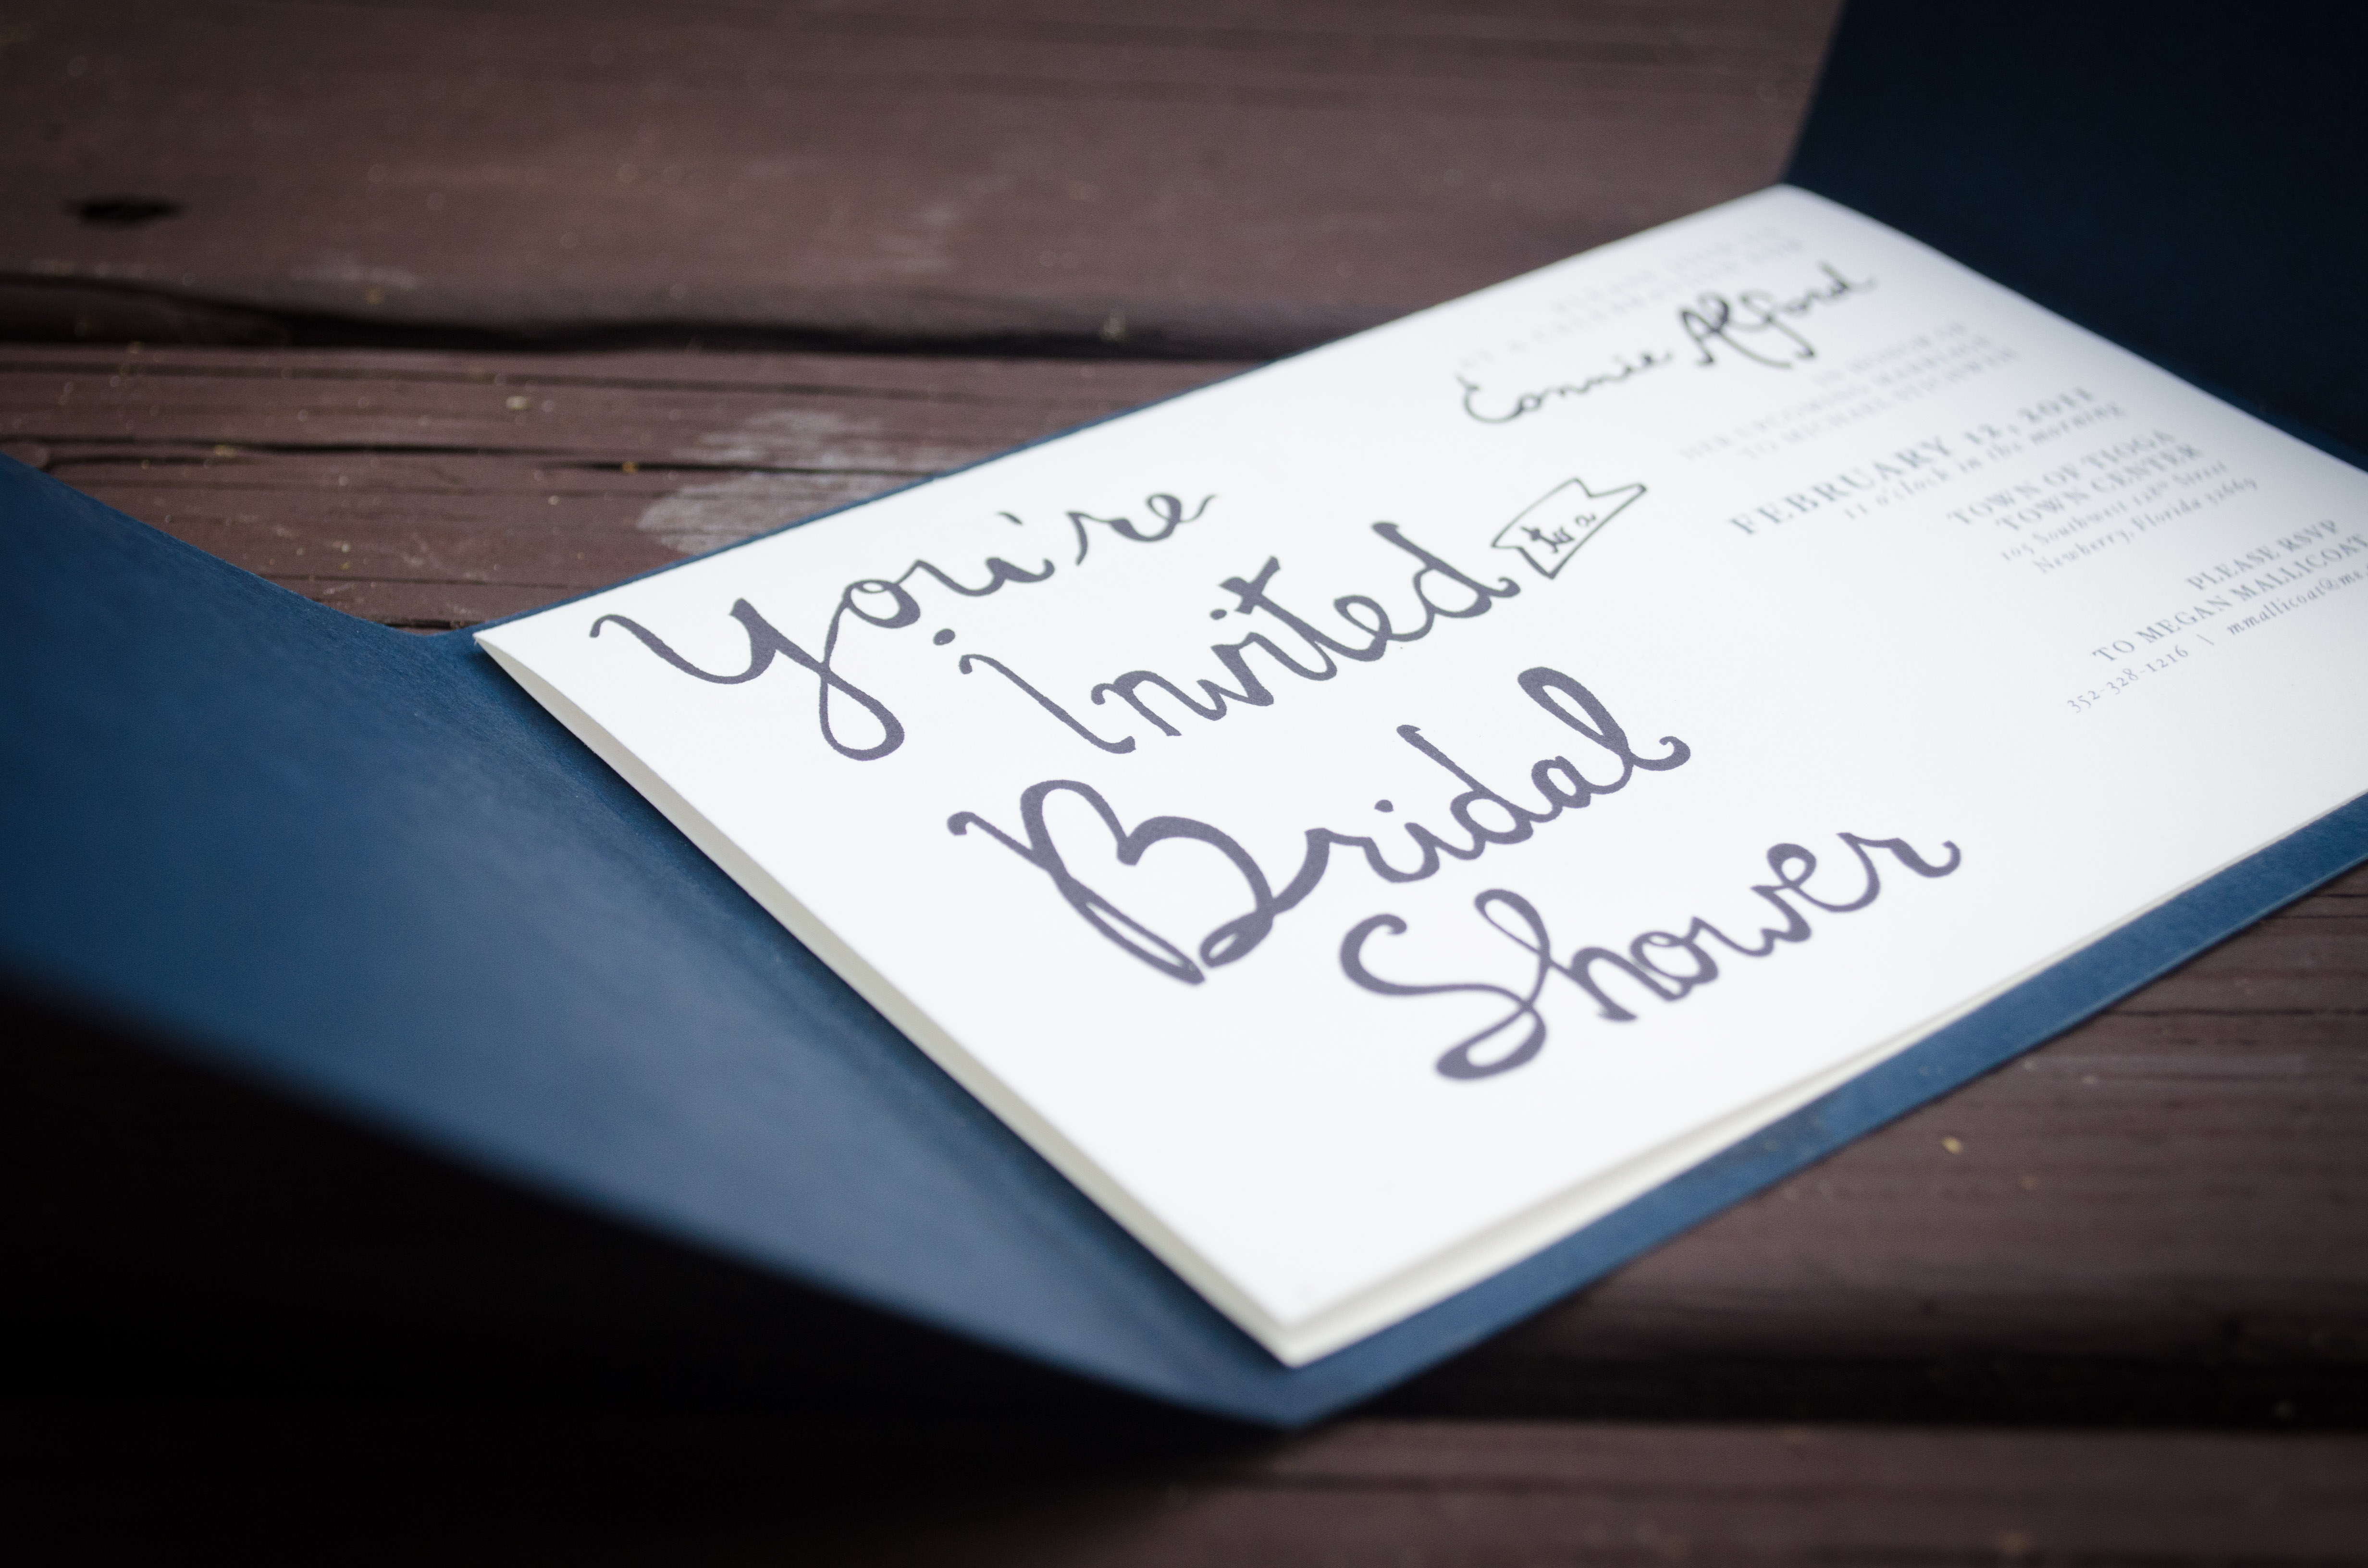 You're
Invited
for a
Bridal
Shower
Connie Alford
IN HONOR OF
HER UPCOMING MARRIAGE
TO MICHAEL
FEBRUARY 12, 2011
11 o'clock in the morning
TOWN OF TIOGA
TOWN CENTER
105 Southwest 128th Street
Newberry, Florida 32669
PLEASE RSVP
TO MEGAN MALLICOAT
352-328-1216 | mmallicoat@me.